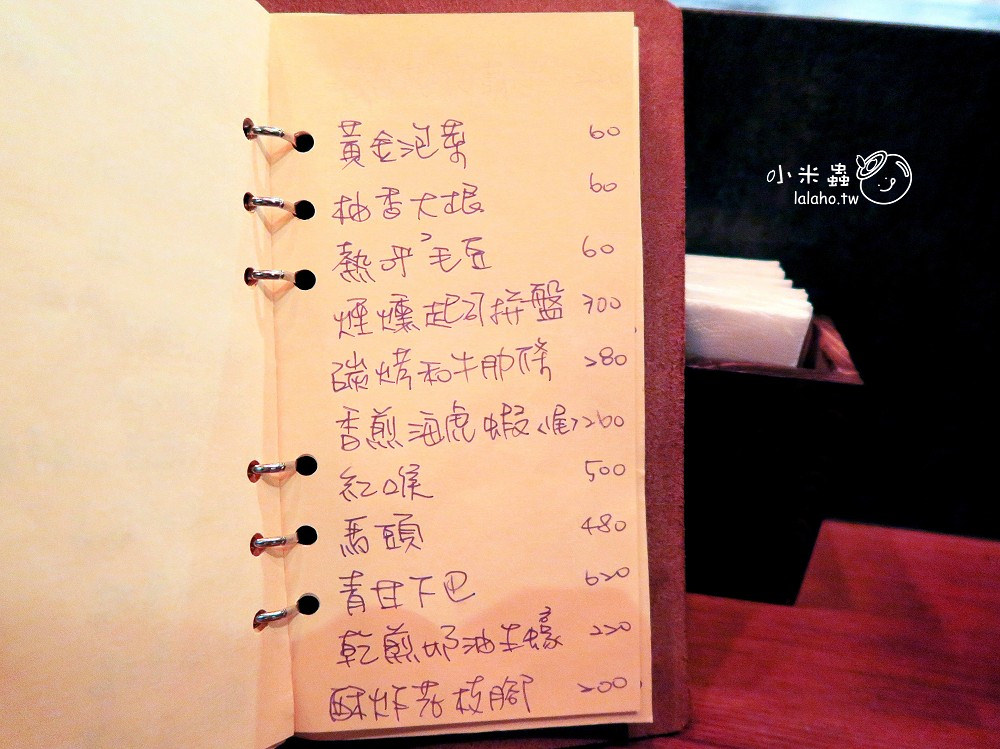 黃金泡菜 60
柚香大根 60
熱呼毛豆 60
煙燻起司拼盤 300
碳烤和牛肋條 280
香煎海虎蝦<尾> 260
紅喉 500
馬頭 480
青甘下巴 620
乾煎奶油生蠔 220
酥炸花枝腳 200
小米蟲
lalaho.tw